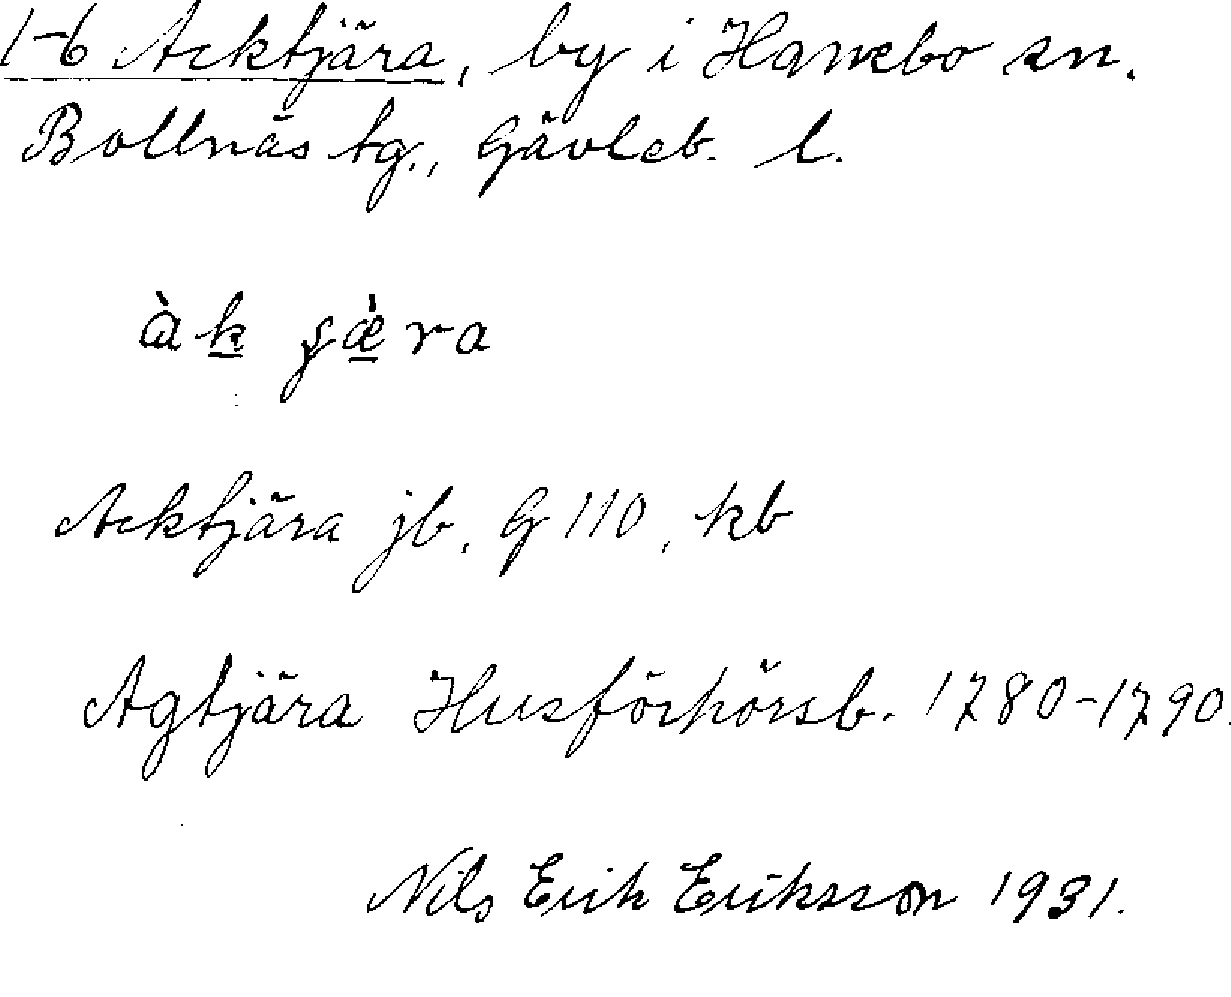 1-6 Acktjära, by i Hanebo sn.
Bollnäs tg., Gävleb. l.
àk ʂæ̀ra
Acktjära jb, G 110, kb
Agtjära Husförhörsb. 1780-1790.
Nils Erik Eriksson 1931.